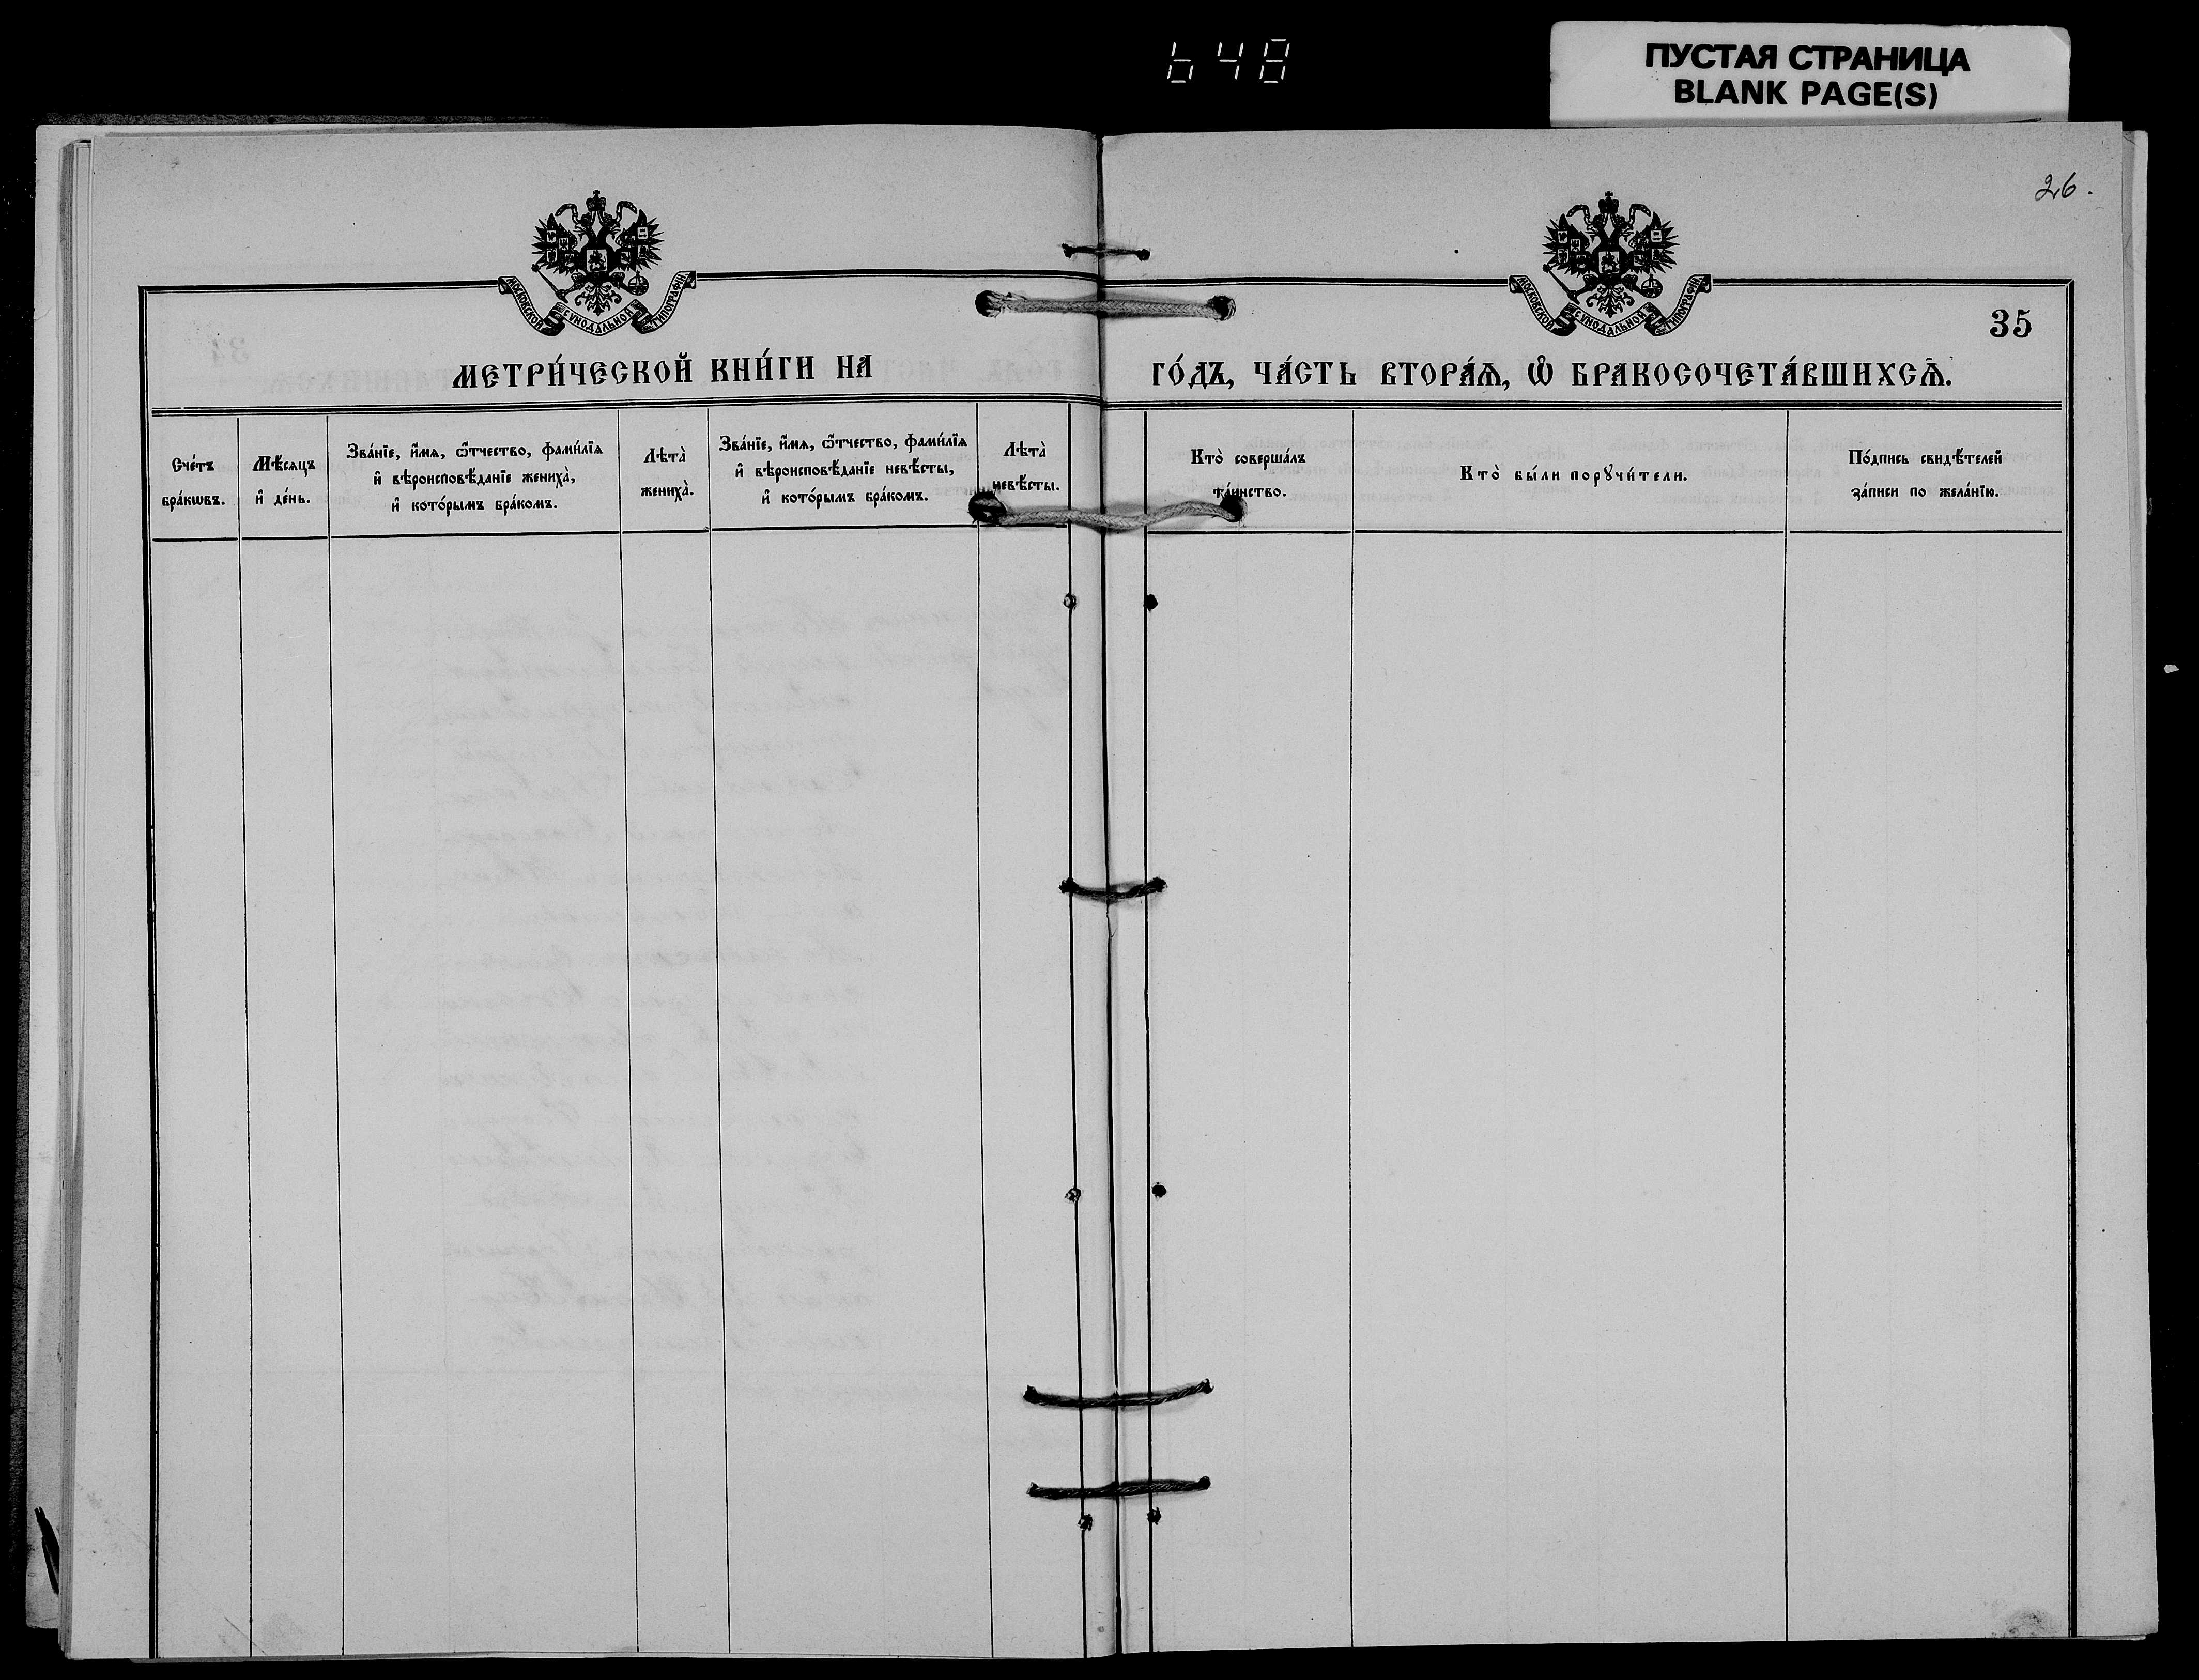 648
ПУСТАЯ СТРАНИЦА
BLANK PAGE(S)
26.
МОСКОВСКОЙ СѴНОДАЛЬНОЙ ТИПОГРАФІИ
МОСКОВСКОЙ СѴНОДАЛЬНОЙ ТИПОГРАФІИ
35
МЕТРИ́ЧЕСКОЙ КНИ́ГИ НА
ГО́ДЪ, ЧА́СТЬ ВТОРА́Ѧ, Ѽ БРАКОСОЧЕТА́ВШИХСѦ.
Сче́тъ
бра́кѡвъ.
Мѣ́сяцъ
и҆ де́нь.
Зва́нїе, и҆́мѧ, ѻ҆́тчество, фами́лїѧ
и҆ вѣроисповѣ́данїе жениха̀,
и҆ кото́рымъ бра́комъ.
Лѣта̀
жениха̀.
Зва́нїе, и҆́мѧ, ѻ҆́тчество, фами́лїѧ
и҆ вѣроисповѣ́данїе невѣ́сты,
и҆ кото́рымъ бра́комъ.
Лѣта̀
невѣ́сты.
Кто̀ соверша́лъ
та́инство.
Кто̀ бы́ли порꙋчи́тели.
По́дпись свидѣ́телей
за́писи по жела́нїю.